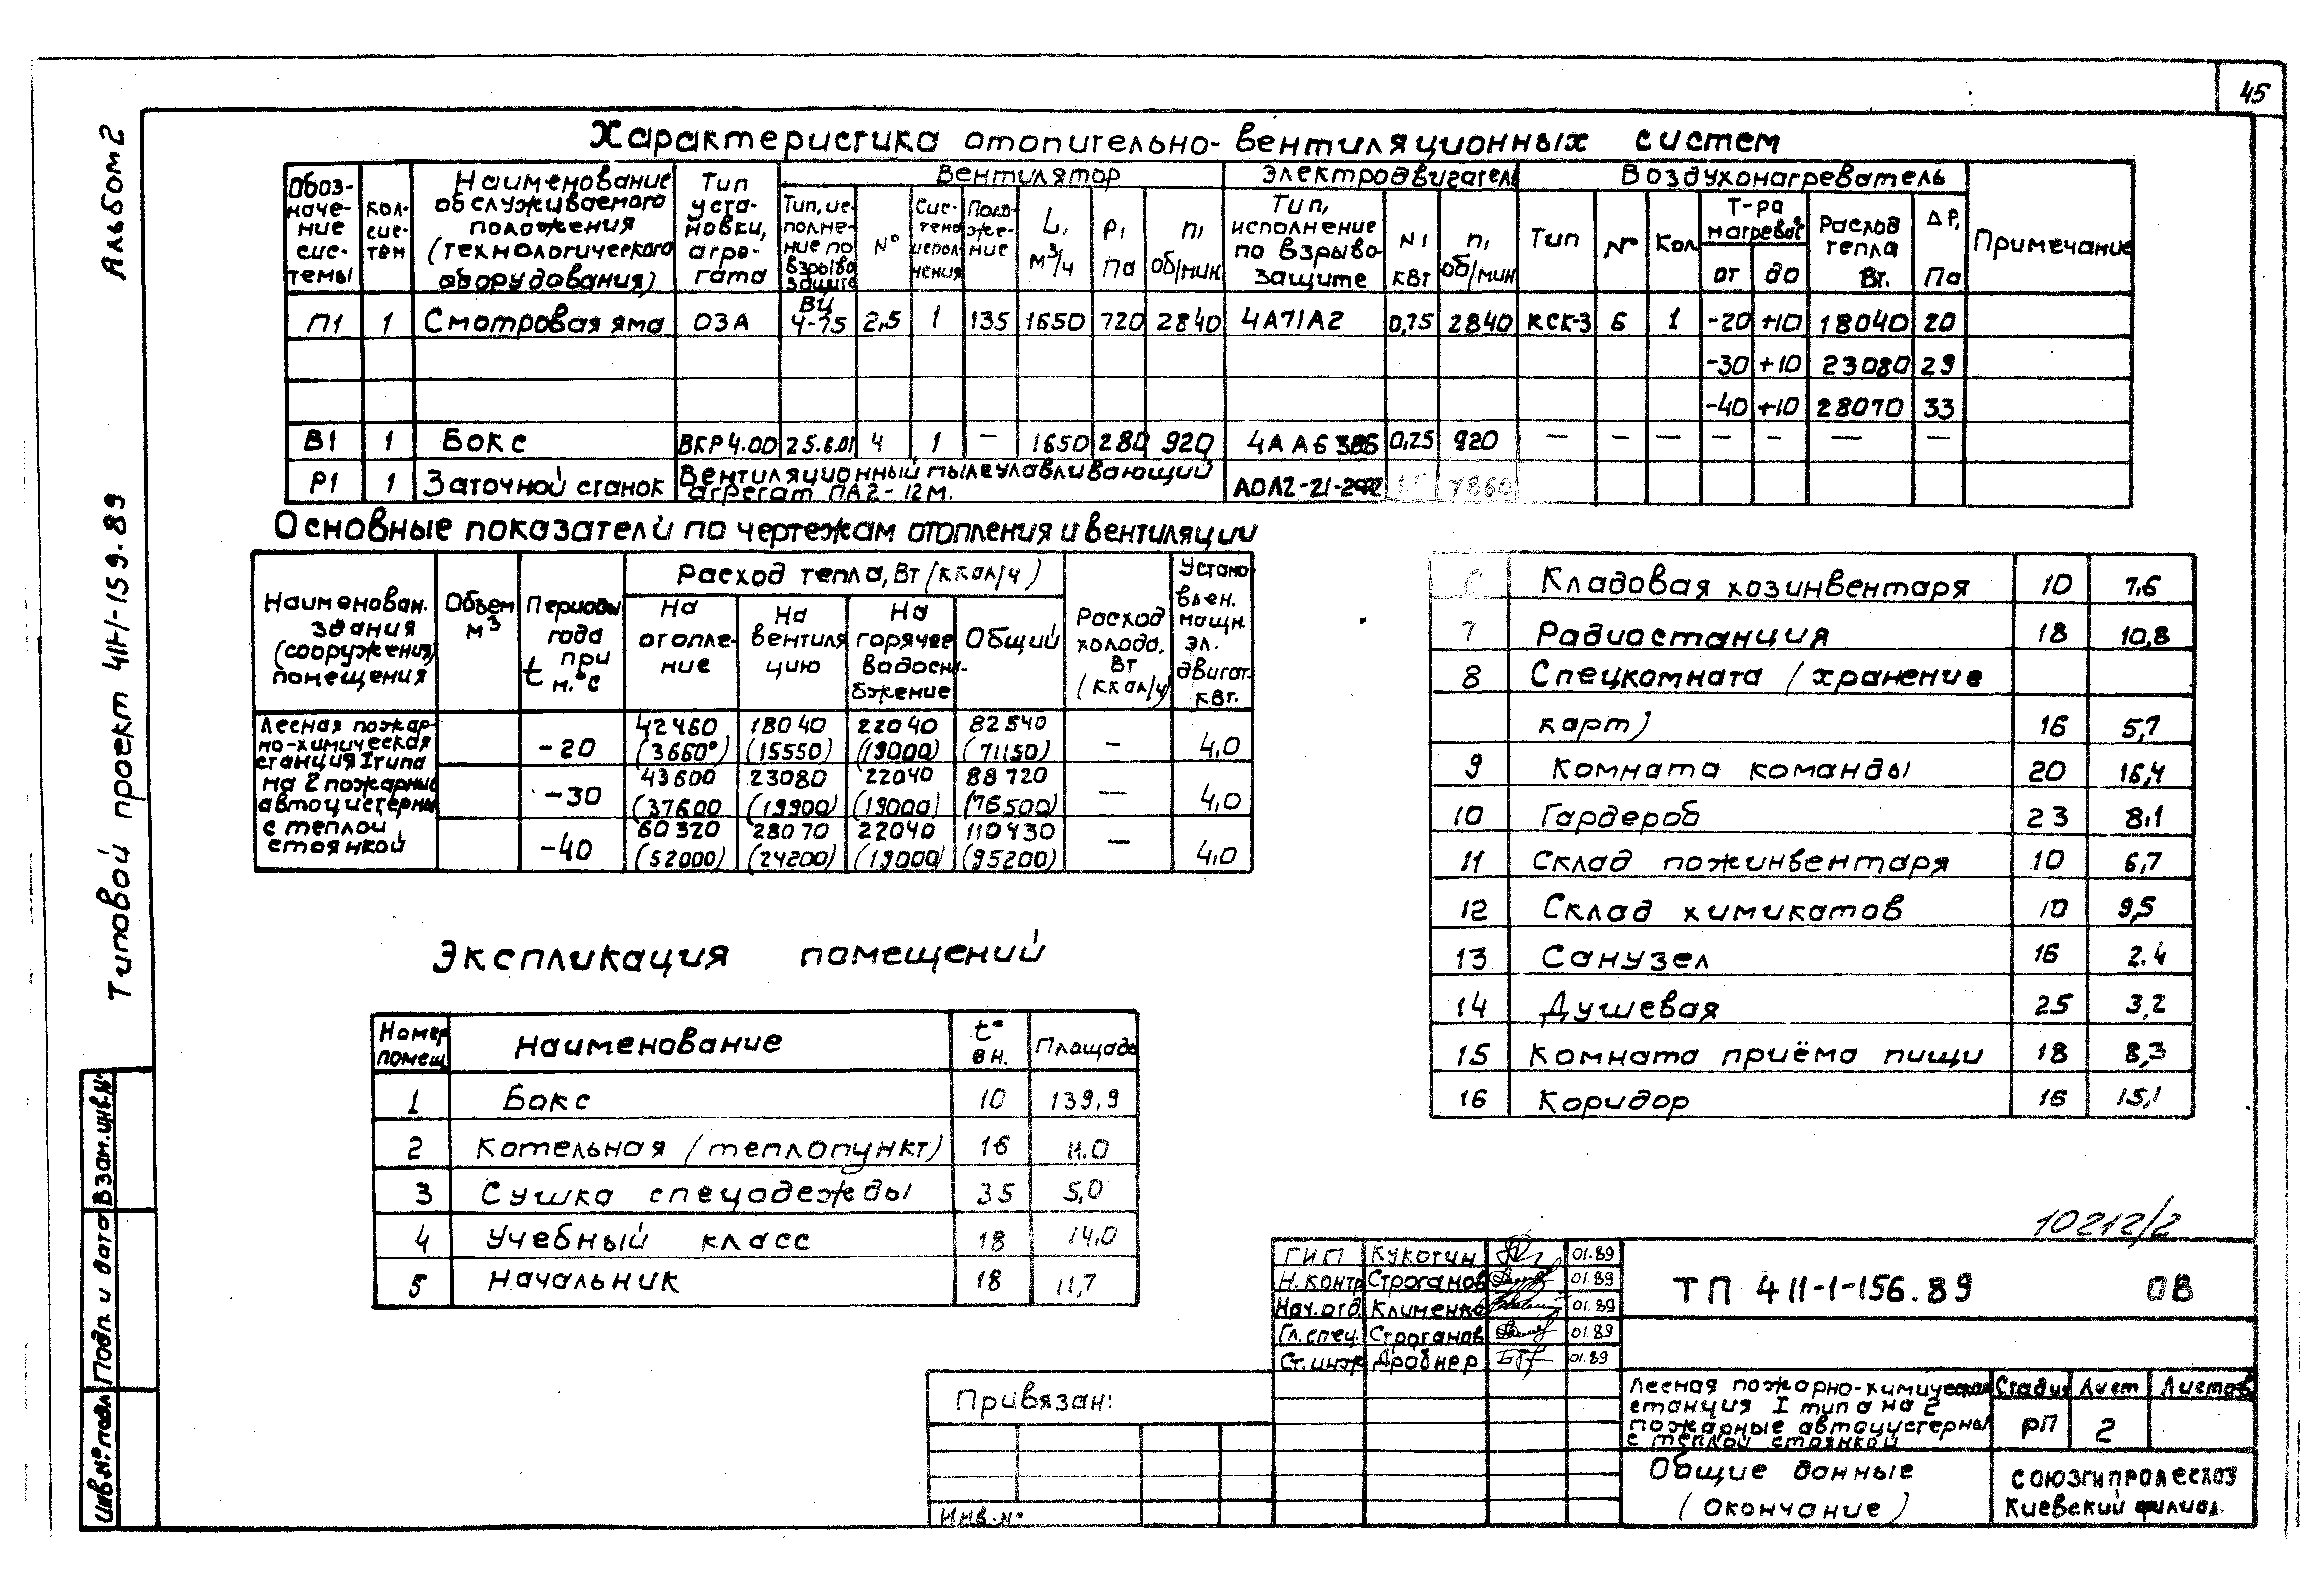 45
Альбом 2
Типовой проект 411-1-159.89
Характеристика отопительно-вентиляционных систем
Обозначение системы | Кол. систем | Наименование обслуживаемого положения (технологического оборудования) | Тип установки, агрегата | Вентилятор | Электродвигатель | Воздухонагреватель | Примечание
Тип, исполнение по взрывозащите | № | Система исполнения | Положение | L, м³/ч | P, Па | n, об/мин | Тип, исполнение по взрывозащите | N, кВт | n, об/мин | Тип | № | Кол | Т-ра нагрева°с от | до | Расход тепла Вт. | ΔР, Па
П1 | 1 | Смотровая яма | ОЗА | ВЦ 4-75 | 2,5 | 1 | 135 | 1650 | 720 | 2840 | 4А71А2 | 0,75 | 2840 | КСК-3 | 6 | 1 | -20 | +10 | 18040 | 20
-30 | +10 | 23080 | 29
-40 | +10 | 28070 | 33
В1 | 1 | Бокс | ВКР4.00 | 25.6.01 | 4 | 1 | — | 1650 | 280 | 920 | 4АА63В6 | 0,25 | 920 | — | — | — | — | - | — | —
Р1 | 1 | Заточной станок | Вентиляционный пылеулавливающий агрегат ПА2-12М. | АОЛ2-21-2
Основные показатели по чертежам отопления и вентиляции
Наименован. здания (сооружения) помещения | Объем м³ | Периоды года при t н.°с | Расход тепла, Вт (ккал/ч) | Расход холода, Вт (ккал/ч) | Установлен. мощн. эл. двигат. кВт.
На отопление | На вентиляцию | На горячее водоснабжение | Общий
Лесная пожарно-химическая станция I типа на 2 пожарные автоцистерны с теплой стоянкой
-20 | 42460 (36600) | 18040 (15550) | 22040 (19000) | 82540 (71150) | — | 4,0
-30 | 43600 (37600 | 23080 (19900) | 22040 (19000) | 88720 (76500) | — | 4,0
-40 | 60320 (52000) | 28070 (24200) | 22040 (19000) | 110430 (95200) | — | 4,0
Экспликация помещений
Номер помещ | Наименование | t° вн. | Площадь
1 | Бокс | 10 | 139,9
2 | Котельная (теплопункт) | 16 | 11.0
3 | Сушка спецодежды | 35 | 5,0
4 | Учебный класс | 18 | 14,0
5 | Начальник | 18 | 11,7
6 | Кладовая хозинвентаря | 10 | 7,6
7 | Радиостанция | 18 | 10,8
8 | Спецкомната (хранение
карт) | 16 | 5,7
9 | Комната команды | 20 | 16,4
10 | Гардероб | 23 | 8,1
11 | Склад пожинвентаря | 10 | 6,7
12 | Склад химикатов | 10 | 9,5
13 | Санузел | 16 | 2.4
14 | Душевая | 25 | 3,2
15 | Комната приёма пищи | 18 | 8,3
16 | Коридор | 16 | 15,1
10212/2
ГИП | Кукотин | 01.89
Н.контр | Строганов | 01.89
Нач.отд. | Клименко | 01.89
Гл.спец. | Строганов | 01.89
Ст.инж | Дробнер | 01.89
ТП 411-1-156.89 ОВ
Лесная пожарно-химическая
станция I типа на 2
пожарные автоцистерны
с теплой стоянкой
Стадия | Лист | Листов
РП | 2
Общие данные
(окончание)
Союзгипролесхоз
Киевский филиал.
Привязан:
Инв.№
Взам.инв.№
Подп. и дата
Инв.№ подл